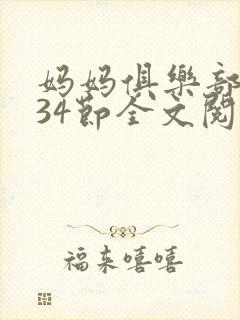 妈妈俱樂部
34節全文閱
福来嘻嘻